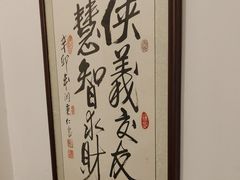 侠義交友
慧智求財
辛卯